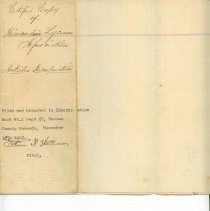 Certified Copy
of
Fernandina Lyceum
Association
Articles Incorporation
Filed and Recorded in Incorporation
Book No.1 Page 67, Nassau
County Records, November
Clerk.